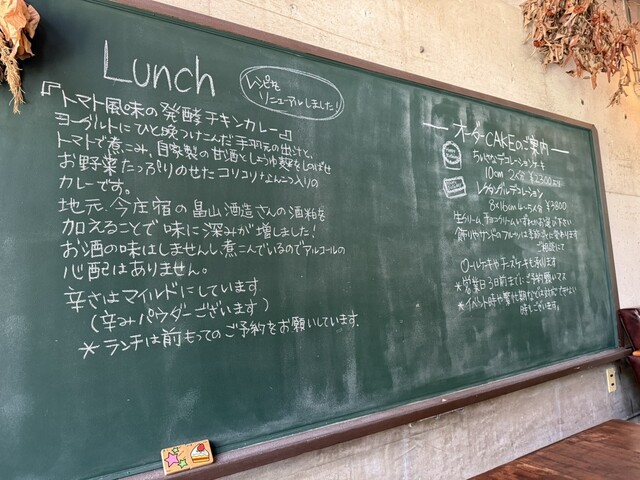 Lunch
レシピを
リニューアルしました!
『トマト風味の発酵チキンカレー』
ヨーグルトにひと晩つけこんだ手羽元の出汁と、
トマトで煮こみ、自家製の甘酒としょうゆ麹をしのばせ
お野菜たっぷりのせたコリコリなんこつ入りの
カレーです。
地元、今庄宿の畠山酒造さんの酒粕を
加えることで味に深みが増しました!
お酒の味はしませんし、煮こんでいるのでアルコールの
心配はありません。
辛さはマイルドにしています
(辛みパウダーございます)
*ランチは前もってのご予約をお願いしています.
オーダーCAKEのご案内
ちいさなデコレーションケーキ
10cm 2分 ¥2300より
レクタングルデコレーション
8×16cm 4~5人分 ¥3800
生クリーム、チョコクリームいずれかお選び下さい
飾りやサンドのフルーツは季節ごとに変わります
ご相談にて
ロールケーキやチーズケーキも承ります
*営業日3日前までにご予約願います
*イベント時や繁忙期などは対応できない
時もございます。